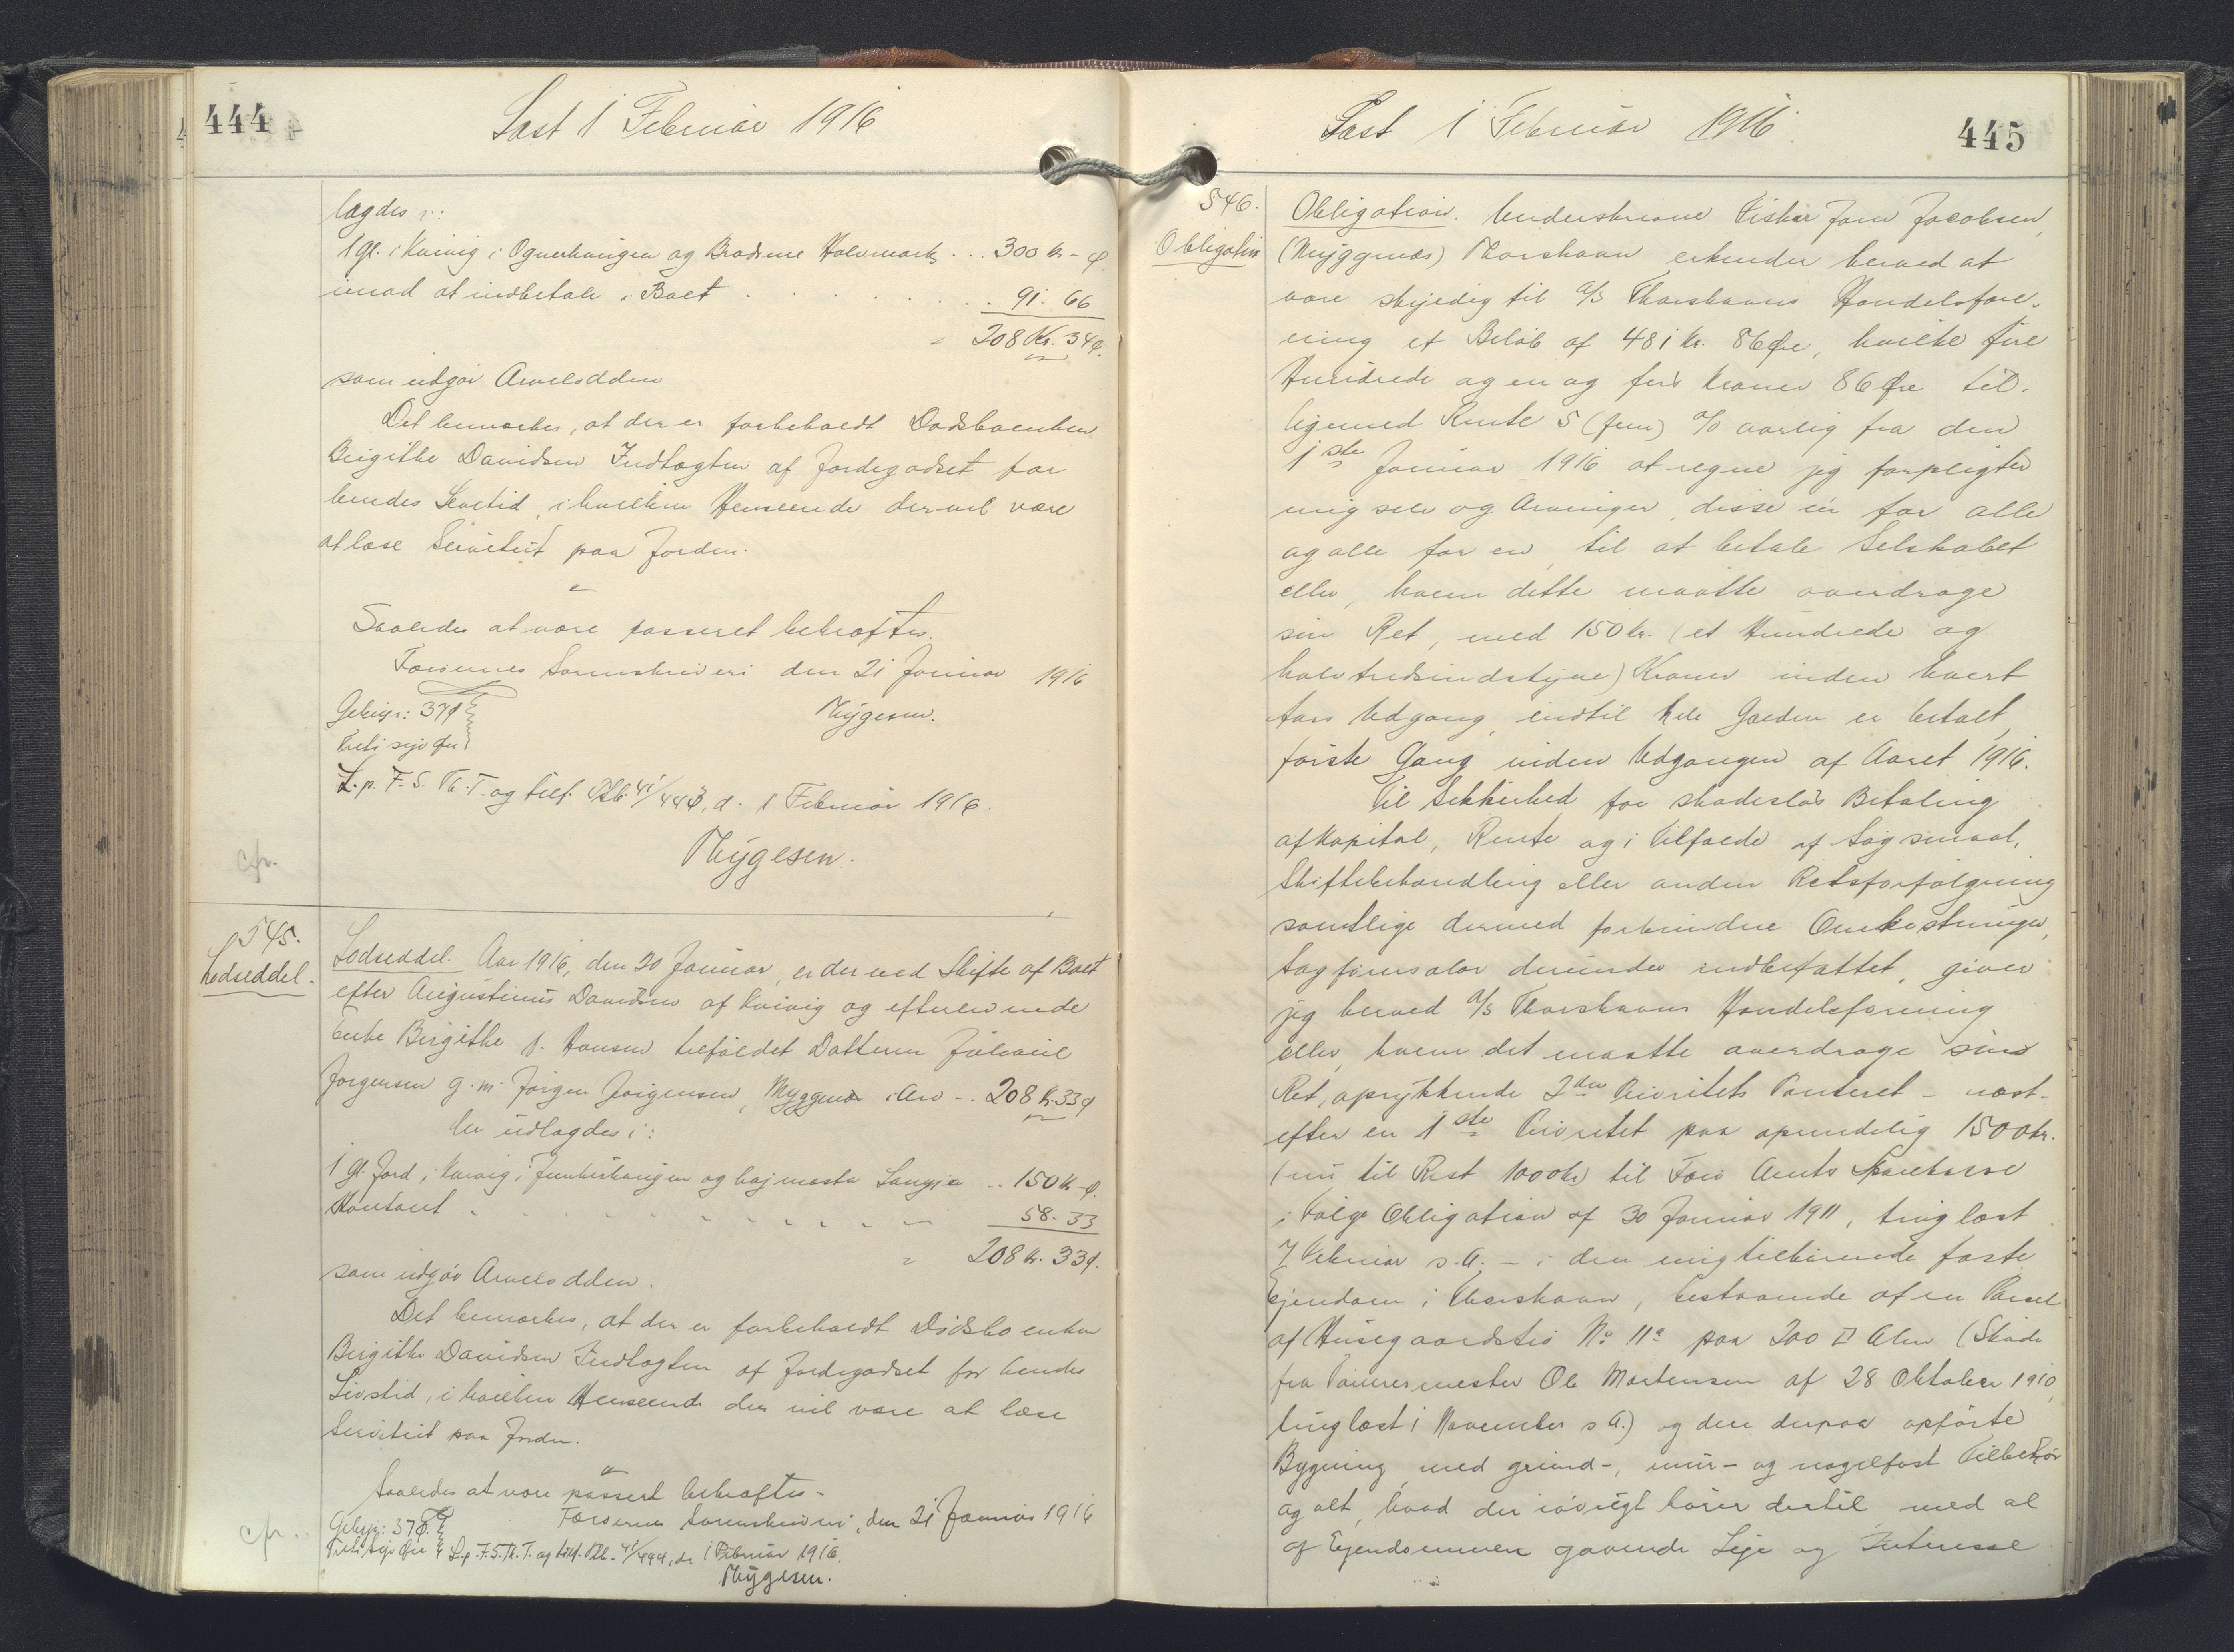 444
Læst 1 Februar 1916
lægdes i:
1 gl. i Kvivig i Ognerhaugen og Brødrene Halvmark ... 300 kr - ø.
imod at indbetale i Boet . . . . . . . . . 91. 66
= 208 Kr. 34 ø.
som udgør Arvelodden
Det bemærkes, at der er forbeholdt Dødsboenken
Birgithe Davidsen Indtægten af Jordegodset for
hendes Levetid, i hvilken Henseende der vil være
at læse Servitut paa Jorden.
Saaledes at være passeret bekræftes.
Færøernes Sorenskriveri den 21 Januar 1916
Gebyr: 37 ø
Thygesen.
Treti syv Øre
L. p. F. S. Th. T. og tilf. Ptb. 41/443, d. 1 Februar 1916.
Thygesen.
cfr.
545.
Lodseddel.
Lodseddel. Aar 1916, den 20 Januar, er der ved Skifte af Boet
efter Augustinus Davidsen af Kvivig og efterlevende
Enke Birgithe f. Hansen tilfaldet Datteren
Jørgensen g. m. Jørgen Jørgensen, Myggenæs i Arv - . 208 kr. 33 ø
der udlægdes i:
1 gl. Jord i Kvivig i og ... 150 kr - ø.
Kontant - - - - - - - - 58. 33
= 208 kr. 33 ø.
som udgør Arvelodden.
Det bemærkes, at der er forbeholdt Dødsboenken
Birgithe Davidsen Indtægten af Jordegodset for hendes
Livstid, i hvilken Henseende der vil være at læse
Servitut paa Jorden.
Saaledes at være passeret bekræftes.
Færøernes Sorenskriveri, den 21 Januar 1916
Gebyr: 37 ø.
cfr.
Treti syv Øre L. p. F. S. Th. T. og tilf. Ptb. 41/444, d. 1 Februar 1916.
Thygesen.
Læst 1 Februar 1916.
445
546.
Obligation
Obligation. Underskrevne Fisker Joen Jacobsen,
(Myggenæs) Thorshavn erkender herved at
være skyldig til A/S Thorshavns Handelsfore-
ning et Beløb af 481 Kr. 86 Øre, hvilke fire
Hundrede og en og firs Kroner 86 Øre til-
ligemed Rente 5 (fem) % aarlig fra den
1ste Januar 1916 at regne jeg forpligter
mig selv og Arvinger, disse en for alle
og alle for en, til at betale Selskabet
eller, hvem dette maatte overdrage
sin Ret, med 150 kr. (et Hundrede og
halvtredsindstyve) Kroner inden hvert
Aars Udgang, indtil hele Gælden er betalt,
første Gang inden Udgangen af Aaret 1916.
Til Sikkerhed for skadesløs Betaling
af Kapital, Rente og i Tilfælde af Søgsmaal,
Skiftebehandling eller anden Retsforfølgning
samtlige dermed forbundne Omkostninger,
Sagførersalær derunder indbefattet, giver
jeg herved A/S Thorshavns Handelsforening
eller, hvem det maatte overdrage sin
Ret, oprykkende 2den Prioritets Panteret - næst-
efter en 1ste Prioritet paa oprindelig 1500 kr.
(nu til Rest 1000 kr) til Færø Amts Sparekasse
i Følge Obligation af 30 Januar 1911, tinglæst
7 Februar s. A. - i den mig tilhørende faste
Ejendom i Thorshavn, bestaaende af en Parcel
af Husegaardsleje No 11a paa 200 □ Alen (Skøde
fra Tømrermester Ole Mortensen af 28 Oktober 1910,
tinglæst 1 November s. A.) og den derpaa opførte
Bygning med grund-, mur- og nagelfast Tilbehør
og alt, hvad der iøvrigt hører dertil med al
af Ejendommen gaaende Leje og Interesse